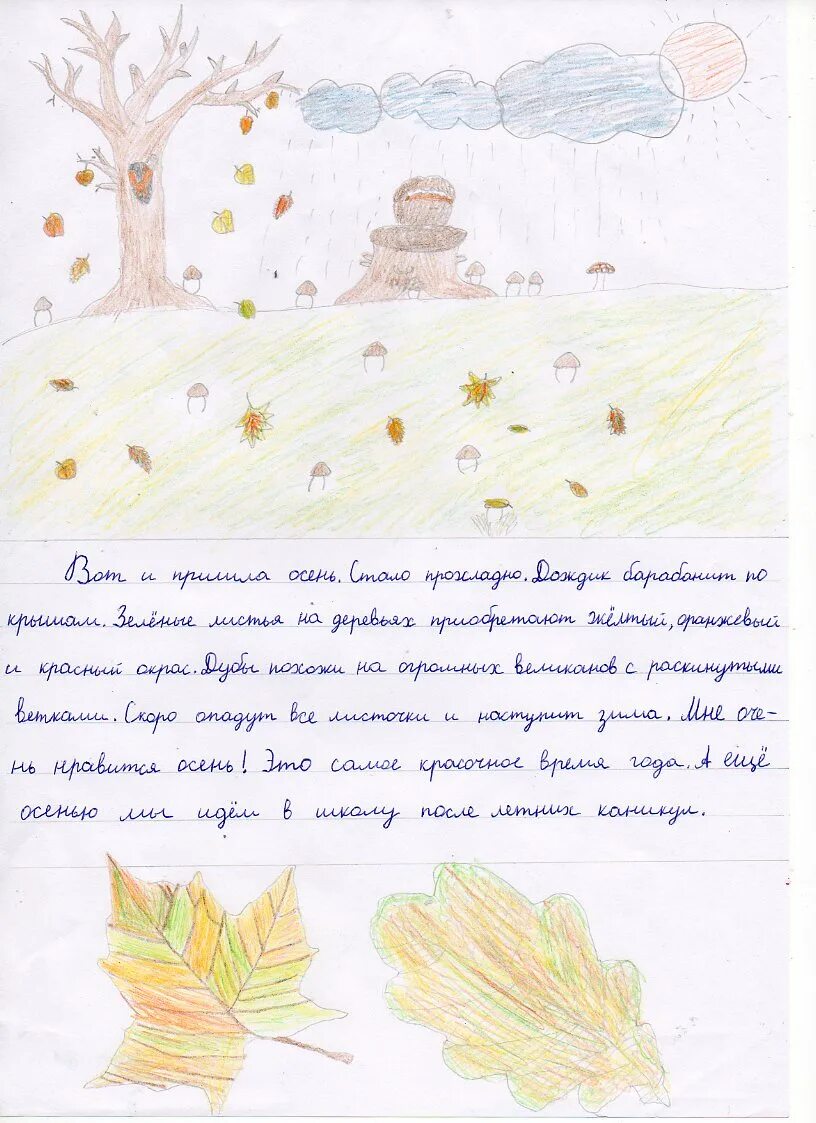 Вот и пришла осень. Стало прохладно. Дождик барабанит по
крышам. Зелёные листья на деревьях приобретают жёлтый, оранжевый
и красный окрас. Дубы похожи на огромных великанов с раскинутыми
ветками. Скоро опадут все листочки и наступит зима. Мне оче-
нь нравится осень! Это самое красочное время года. А ещё
осенью мы идём в школу после летних каникул.